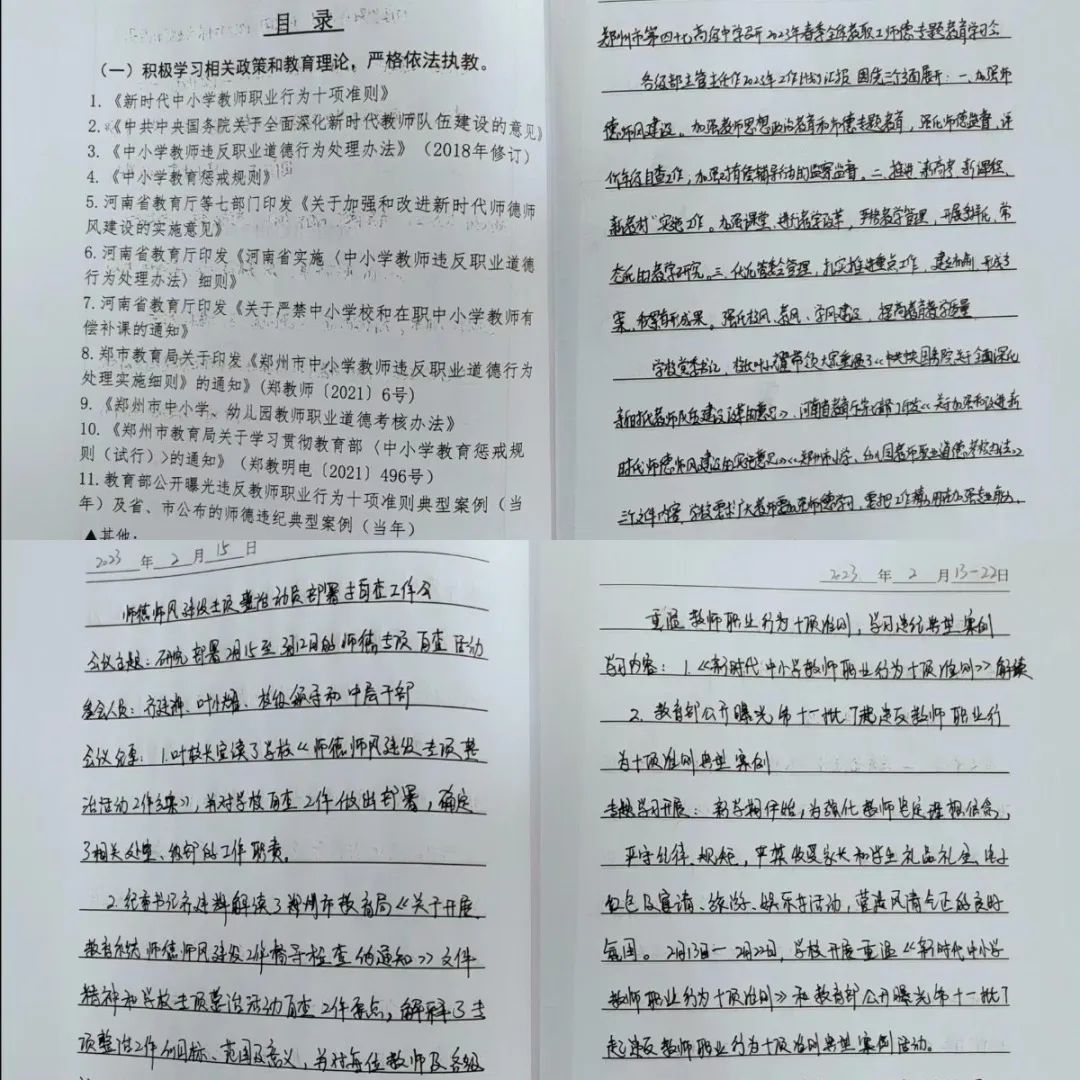 目 录
（一）积极学习相关政策和教育理论，严格依法执教。
1. 《新时代中小学教师职业行为十项准则》
2.《中共中央国务院关于全面深化新时代教师队伍建设的意见》
3. 《中小学教师违反职业道德行为处理办法》（2018年修订）
4. 《中小学教育惩戒规则》
5. 河南省教育厅等七部门印发《关于加强和改进新时代师德师
风建设的实施意见》
6. 河南省教育厅印发《河南省实施〈中小学教师违反职业道德
行为处理办法〉细则》
7. 河南省教育厅印发《关于严禁中小学校和在职中小学教师有
偿补课的通知》
8. 郑市教育局关于印发《郑州市中小学教师违反职业道德行为
处理实施细则》的通知》(郑教师〔2021〕6号)
9. 《郑州市中小学、幼儿园教师职业道德考核办法》
10. 《郑州市教育局关于学习贯彻教育部〈中小学教育惩戒规
则（试行）>的通知》（郑教明电〔2021〕496号）
11. 教育部公开曝光违反教师职业行为十项准则典型案例（当
年）及省、市公布的师德违纪典型案例（当年）
▲其他：
郑州市第四十七高级中学召开2023年春季全体教职工师德专题教育学习会
各级部主管主任作2023年工作计划汇报 围绕三个方面展开：一、加强师
德师风建设。加强教师思想政治教育和师德专题教育，强化师德监督，评
作年级自查工作，加强对有偿辅导行为的监察监督。二、推进"新高考、新课程、
新教材"实施工作。加强课堂、进行教学改革，严格教学管理，开展多样化、常
态化的教学研究。三、优化管理，扎实推进重点工作，
果。强化校风、教风、学风建设，提高教育教学质量
学校党委书记、校长叶小耀带领大家重温了《中共中央国务院关于全面深化
新时代教师队伍建设改革的意见》、河南省教育厅等七部门印发《关于加强和改进新
时代师德师风建设的实施意见》《郑州市中小学、幼儿园教师职业道德考核办法》
三个文件内容，学校要求广大教师要加强师德学习，要把工作精力用在
2023 年 2 月 15 日
师德师风建设专项整治动员部署与自查工作会
会议主题：研究部署2月15至3月12日的师德专项自查活动
参会人员：叶小耀、校级领导和中层干部
会议内容：1.叶校长宣读了学校《师德师风建设专项整
治活动工作方案》，并对学校自查工作做出部署，确定
了相关处室、级部的工作职责。
2.纪委书记解读了郑州市教育局《关于开展
教育系统师德师风建设工作督导检查的通知》文件
精神和学校专项整治活动自查工作要点，解释了专
项整治工作的目标、范围及意义，并对每位教师及各级
2023 年 2 月13-22日
重温教师职业行为十项准则，学习违纪典型案例
学习内容：1.《新时代中小学教师职业行为十项准则》解读
2. 教育部公开曝光第十一批7起违反教师职业行
为十项准则典型案例
专题学习开展：新学期伊始，为强化教师坚定理想信念，
严守纪律、规矩，严禁收受家长和学生礼品礼金、电子
红包及宴请、旅游、娱乐等活动，营造风清气正的良好
氛围。2月13日—2月22日，学校开展重温《新时代中小学
教师职业行为十项准则》和教育部公开曝光第十一批7
起违反教师职业行为十项准则典型案例活动。